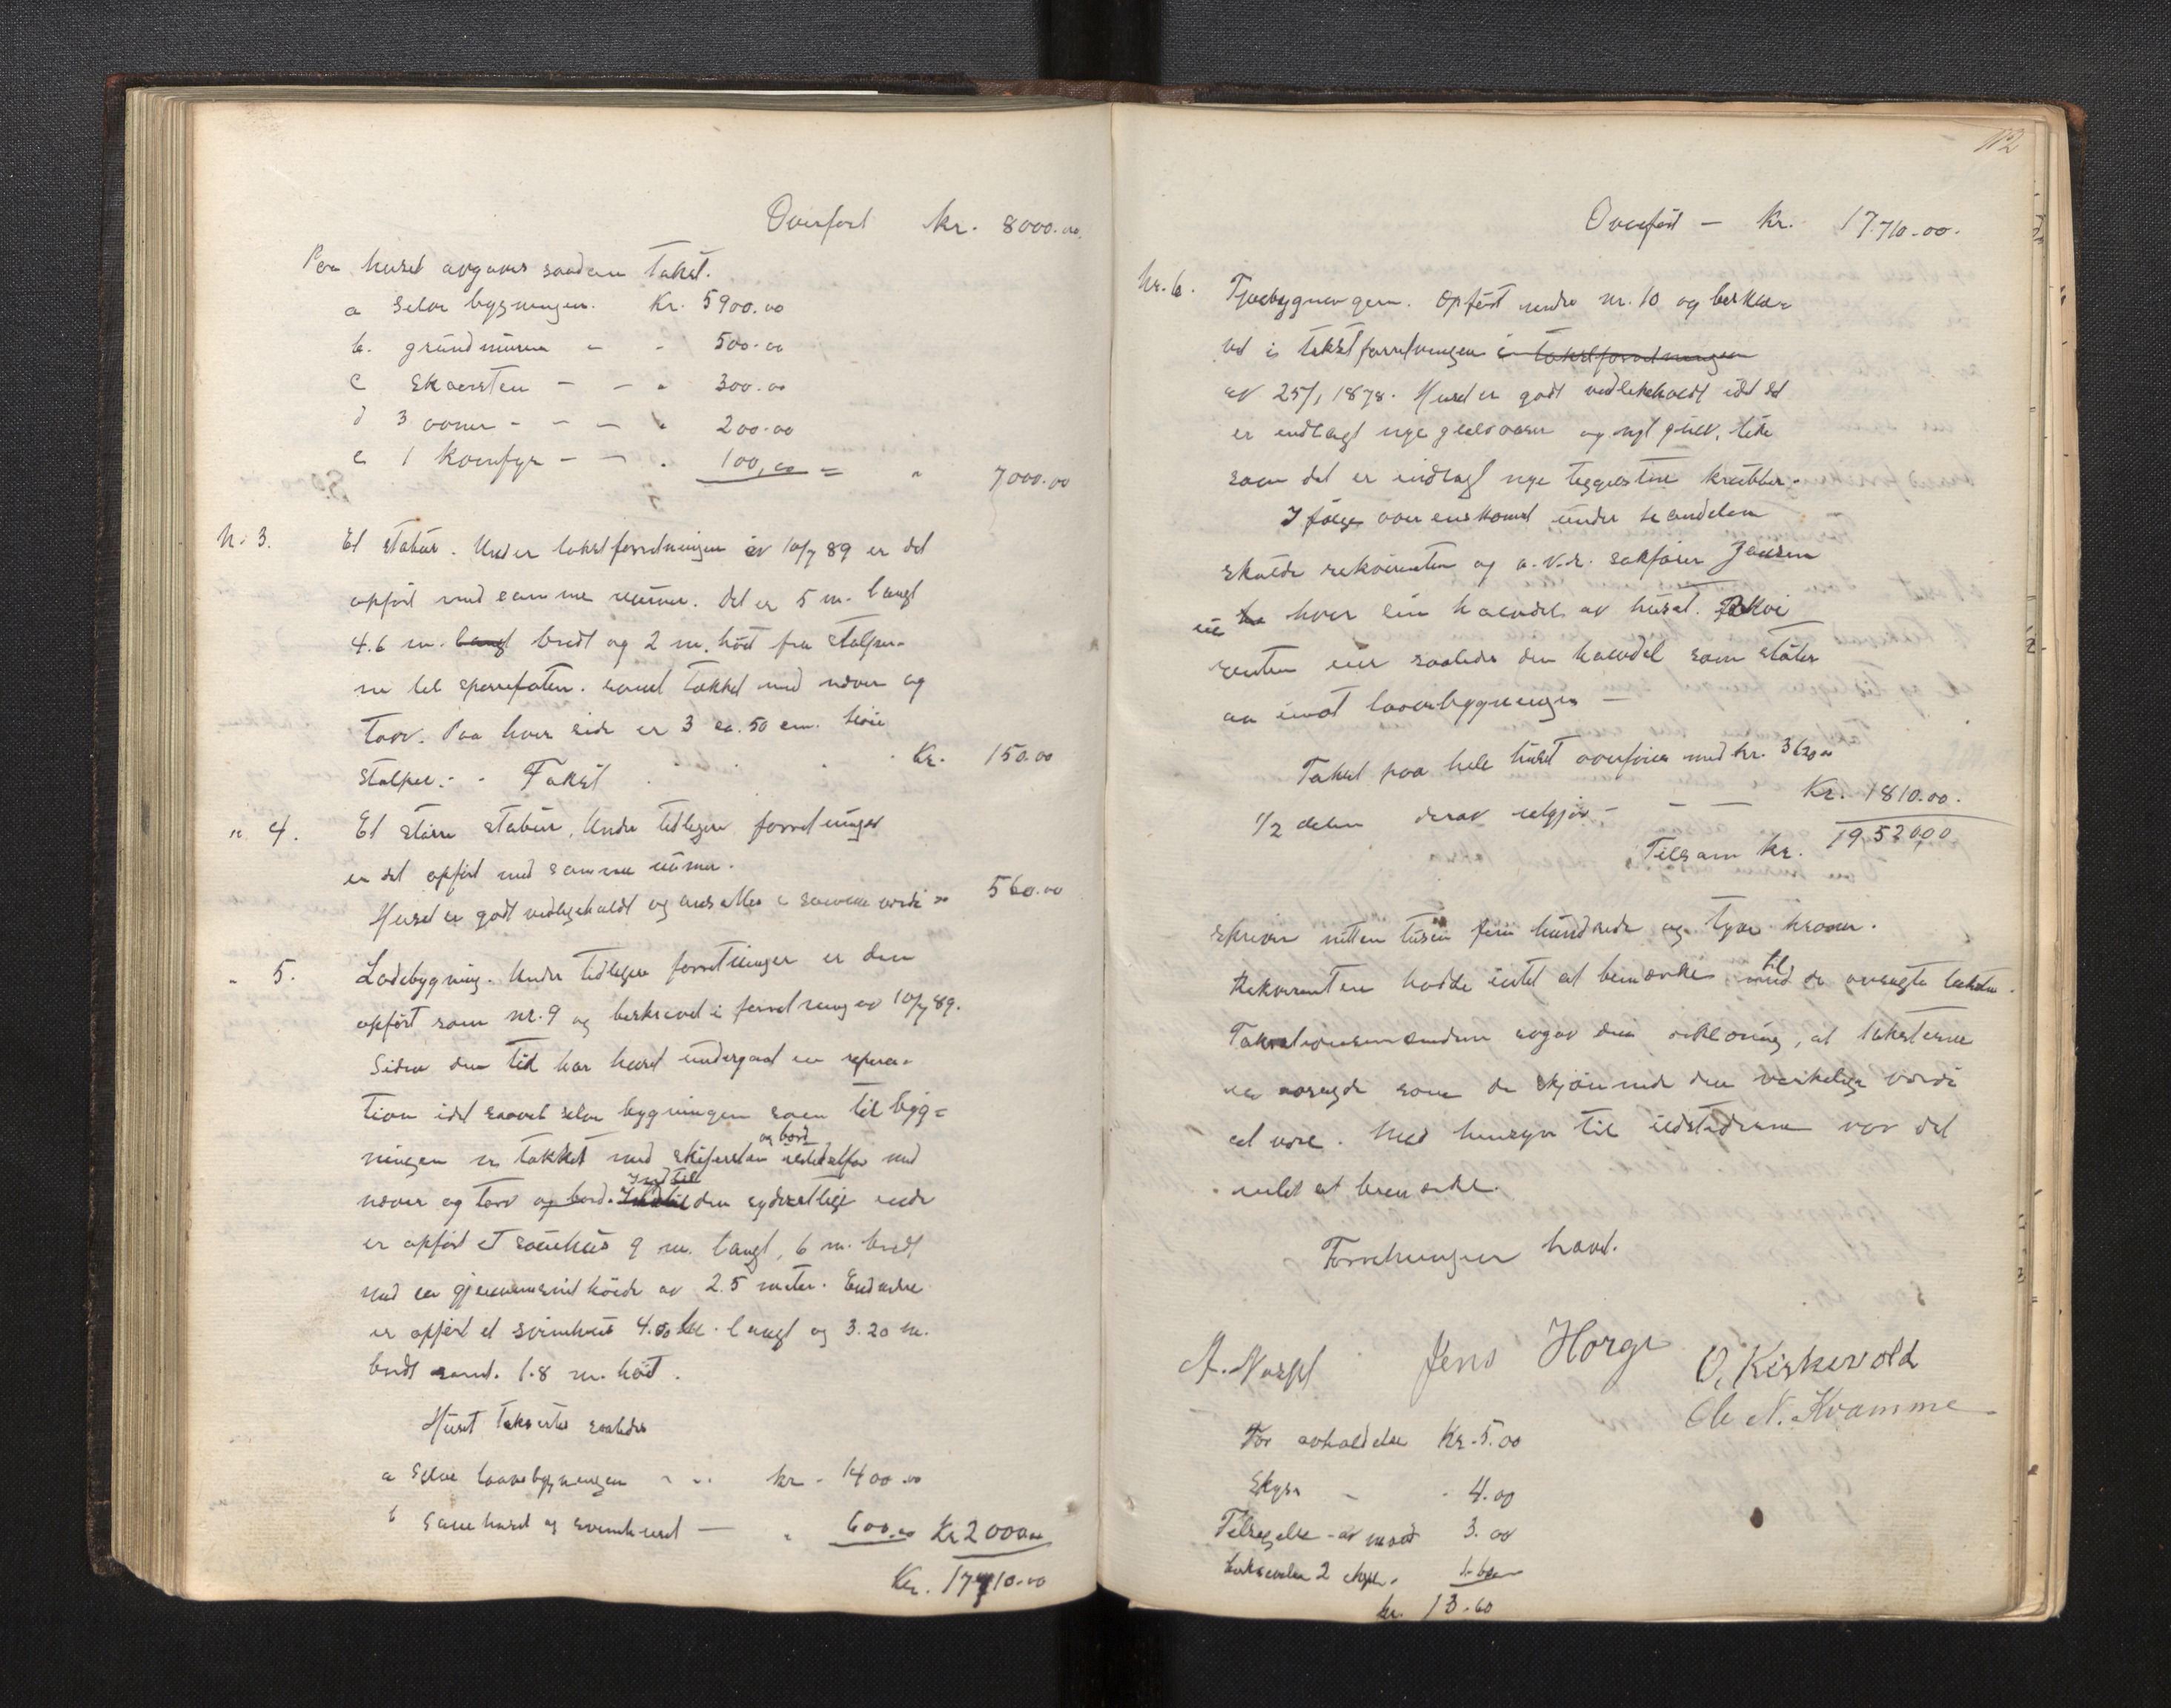 Overført kr. 8000.00
Paa huset avgaves saadan takst.
a Selve bygningen. Kr. 5900.00
b. grundmuren - - 500.00
c Skorsten - - - 300.00
d 3 ovner - - - 200.00
e 1 komfyr - - - 100,00 = " 7000.00
Nr 3. Et stabur. Under takstforretningen av 10/7 89 er det
opført med samme numer. Det er 5 m. langt
4.6 m. langt bredt og 2 m. høit fra stolper-
ne til sperrefoten. samt takket med næver og
torv. Paa hver side er 3 ca. 50 cm. høie
stolper. - Takst . . . Kr. 150.00
" 4. Et større stabur. Under tidligere forretninger
er det opført med samme numer.
Huset er godt vedligeholdt og ansettes i samme værdi " 560.00
" 5. Ladebygning. Under tidligere forretninger er den
opført som nr. 9 og beskrevet i forretning av 10/7 89.
Siden den tid har huset undergaat en repara-
tion idet saavel selve bygningen som tilbyg-
og bord
ningen er takket med skifersten istedetfor med
Ind til
næver og torv og bord. Indtil den sydvestlige ende
er opført et sauehus 9 m. langt, 6 m. bredt
med en gjennemsnit høide av 2.5 meter. Endvidere
er opført et svinehus 4.00 m. langt og 3.20 m.
bredt samt. 1.8 m. høit.
Huset taksertes saaledes
a Selve laavebygningen - - kr. 1400.00
b Sauehuset og svinehuset - " 600.00 Kr 2000.00
Kr. 17710.00
112
Overført - Kr. 17.710.00.
Nr. 6. Fjøsbygningen. Opført under nr. 10 og beskre-
vet i takstforretningen i takstforretningen
av 25/1 1878. Huset er godt vedlikeholdt idet det
er indlagt nye gulvaaser og nyt gulv, like
som det er indlagt nye krubber.
Ifølge overenskomst under handelen
skulde rekvirenten og o.r.s. sakfører Jansen
eie hver sin halvdel av huset. Rekvi
renten eier saaledes den halvdel som støter
an imot laavebygningen -
Takst paa hele huset overføres med kr. 3620.00
1/2 delen derav utgjør - - - Kr. 1810.00.
Tilsam kr. 19520.00
skriver nitten tusen fem hundrede og tyve kroner.
til
Rekvirenten hadde intet at bemærke med de avsagte takster.
Takstationsmændene avgav den erklæring, at taksterne
er avsagde som de skjønnede den virkelige værdi
at være. Med hensyn til ildstederne var det
intet at bemærke.
Forretningen hævet.
Jens Horge O. Kirkevold
Ole N. Kvamme
For avholdelse Kr. 5.00
Skyss - - 4.00
Tilsigelse av mænd 3.00
2 1.60
kr. 13.60